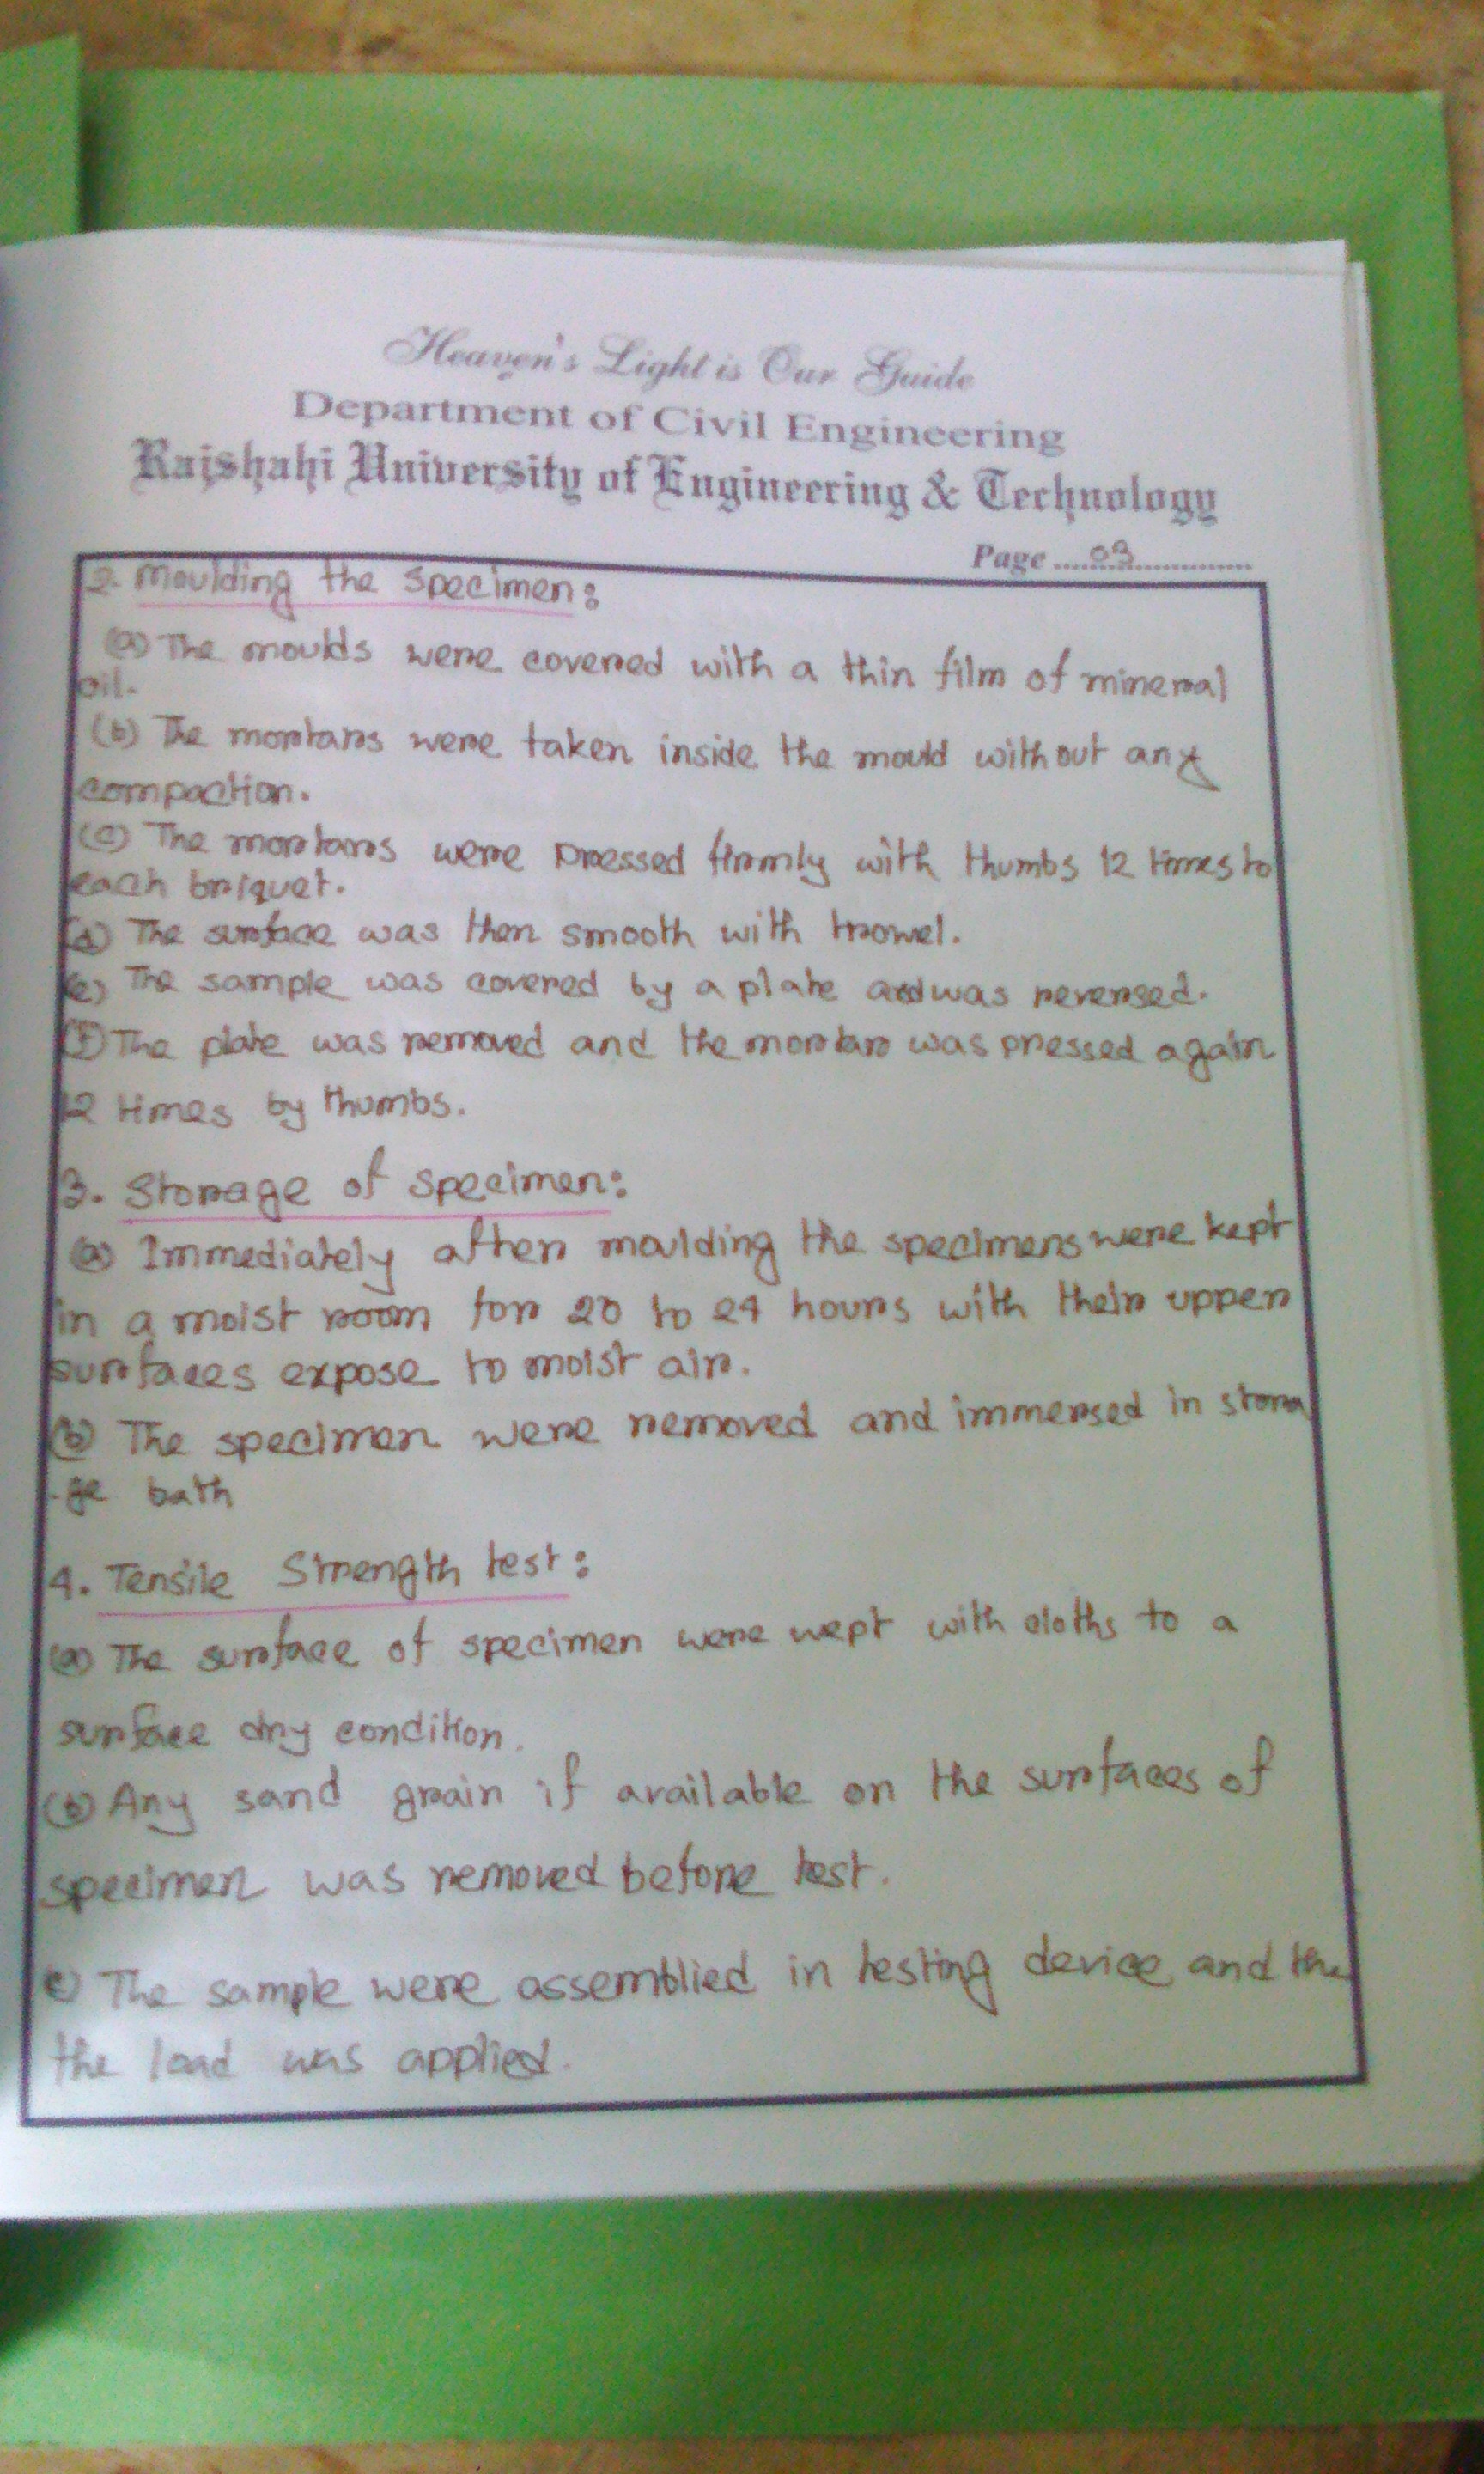 Heaven's Light is Our Guide
Department of Civil Engineering
Rajshahi University of Engineering & Technology
Page ....03..............
2. Moulding the specimen:
(a) The moulds were covered with a thin film of mineral
oil.
(b) The mortars were taken inside the mould without any
compaction.
(c) The mortars were pressed firmly with thumbs 12 times to
each briquet.
(d) The surface was then smooth with trowel.
(e) The sample was covered by a plate and was reversed.
(f) The plate was removed and the mortar was pressed again
12 times by thumbs.
3. Storage of specimen:
(a) Immediately after moulding the specimens were kept
in a moist room for 20 to 24 hours with their upper
surfaces expose to moist air.
(b) The specimen were removed and immersed in stora
-ge bath
4. Tensile Strength test:
(a) The surface of specimen were wept with cloths to a
surface dry condition.
(b) Any sand grain if available on the surfaces of
specimen was removed before test.
c) The sample were assemblied in testing device and the
the load was applied.